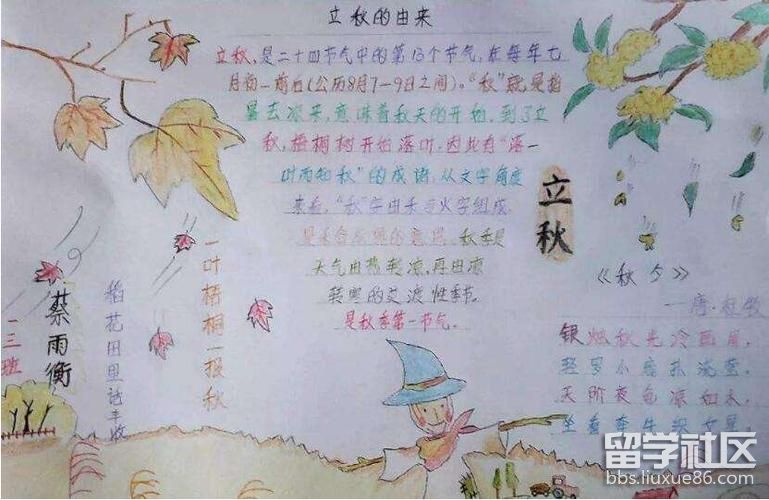 立秋的由来
立秋,是二十四节气中的第13个节气,在每年七
月初一前后(公历8月7-9日之间)。"秋"就是指
暑去凉来,意味着秋天的开始。到了立
秋,梧桐树开始落叶,因此有"落一
叶而知秋"的成语,从文字角度
来看,"秋"字由禾与火字组成,
是禾谷成熟的意思。秋季是
天气由热转凉,再由凉
转寒的过渡性季节。
是秋季第一节气。
立秋
《秋夕》
一唐·杜牧
银烛秋光冷画屏,
轻罗小扇扑流萤。
天阶夜色凉如水,
坐看牵牛织女星
一叶梧桐一报秋
稻花田里话丰收
蔡雨衡
一三班
留学社区
bbs.liuxue86.com